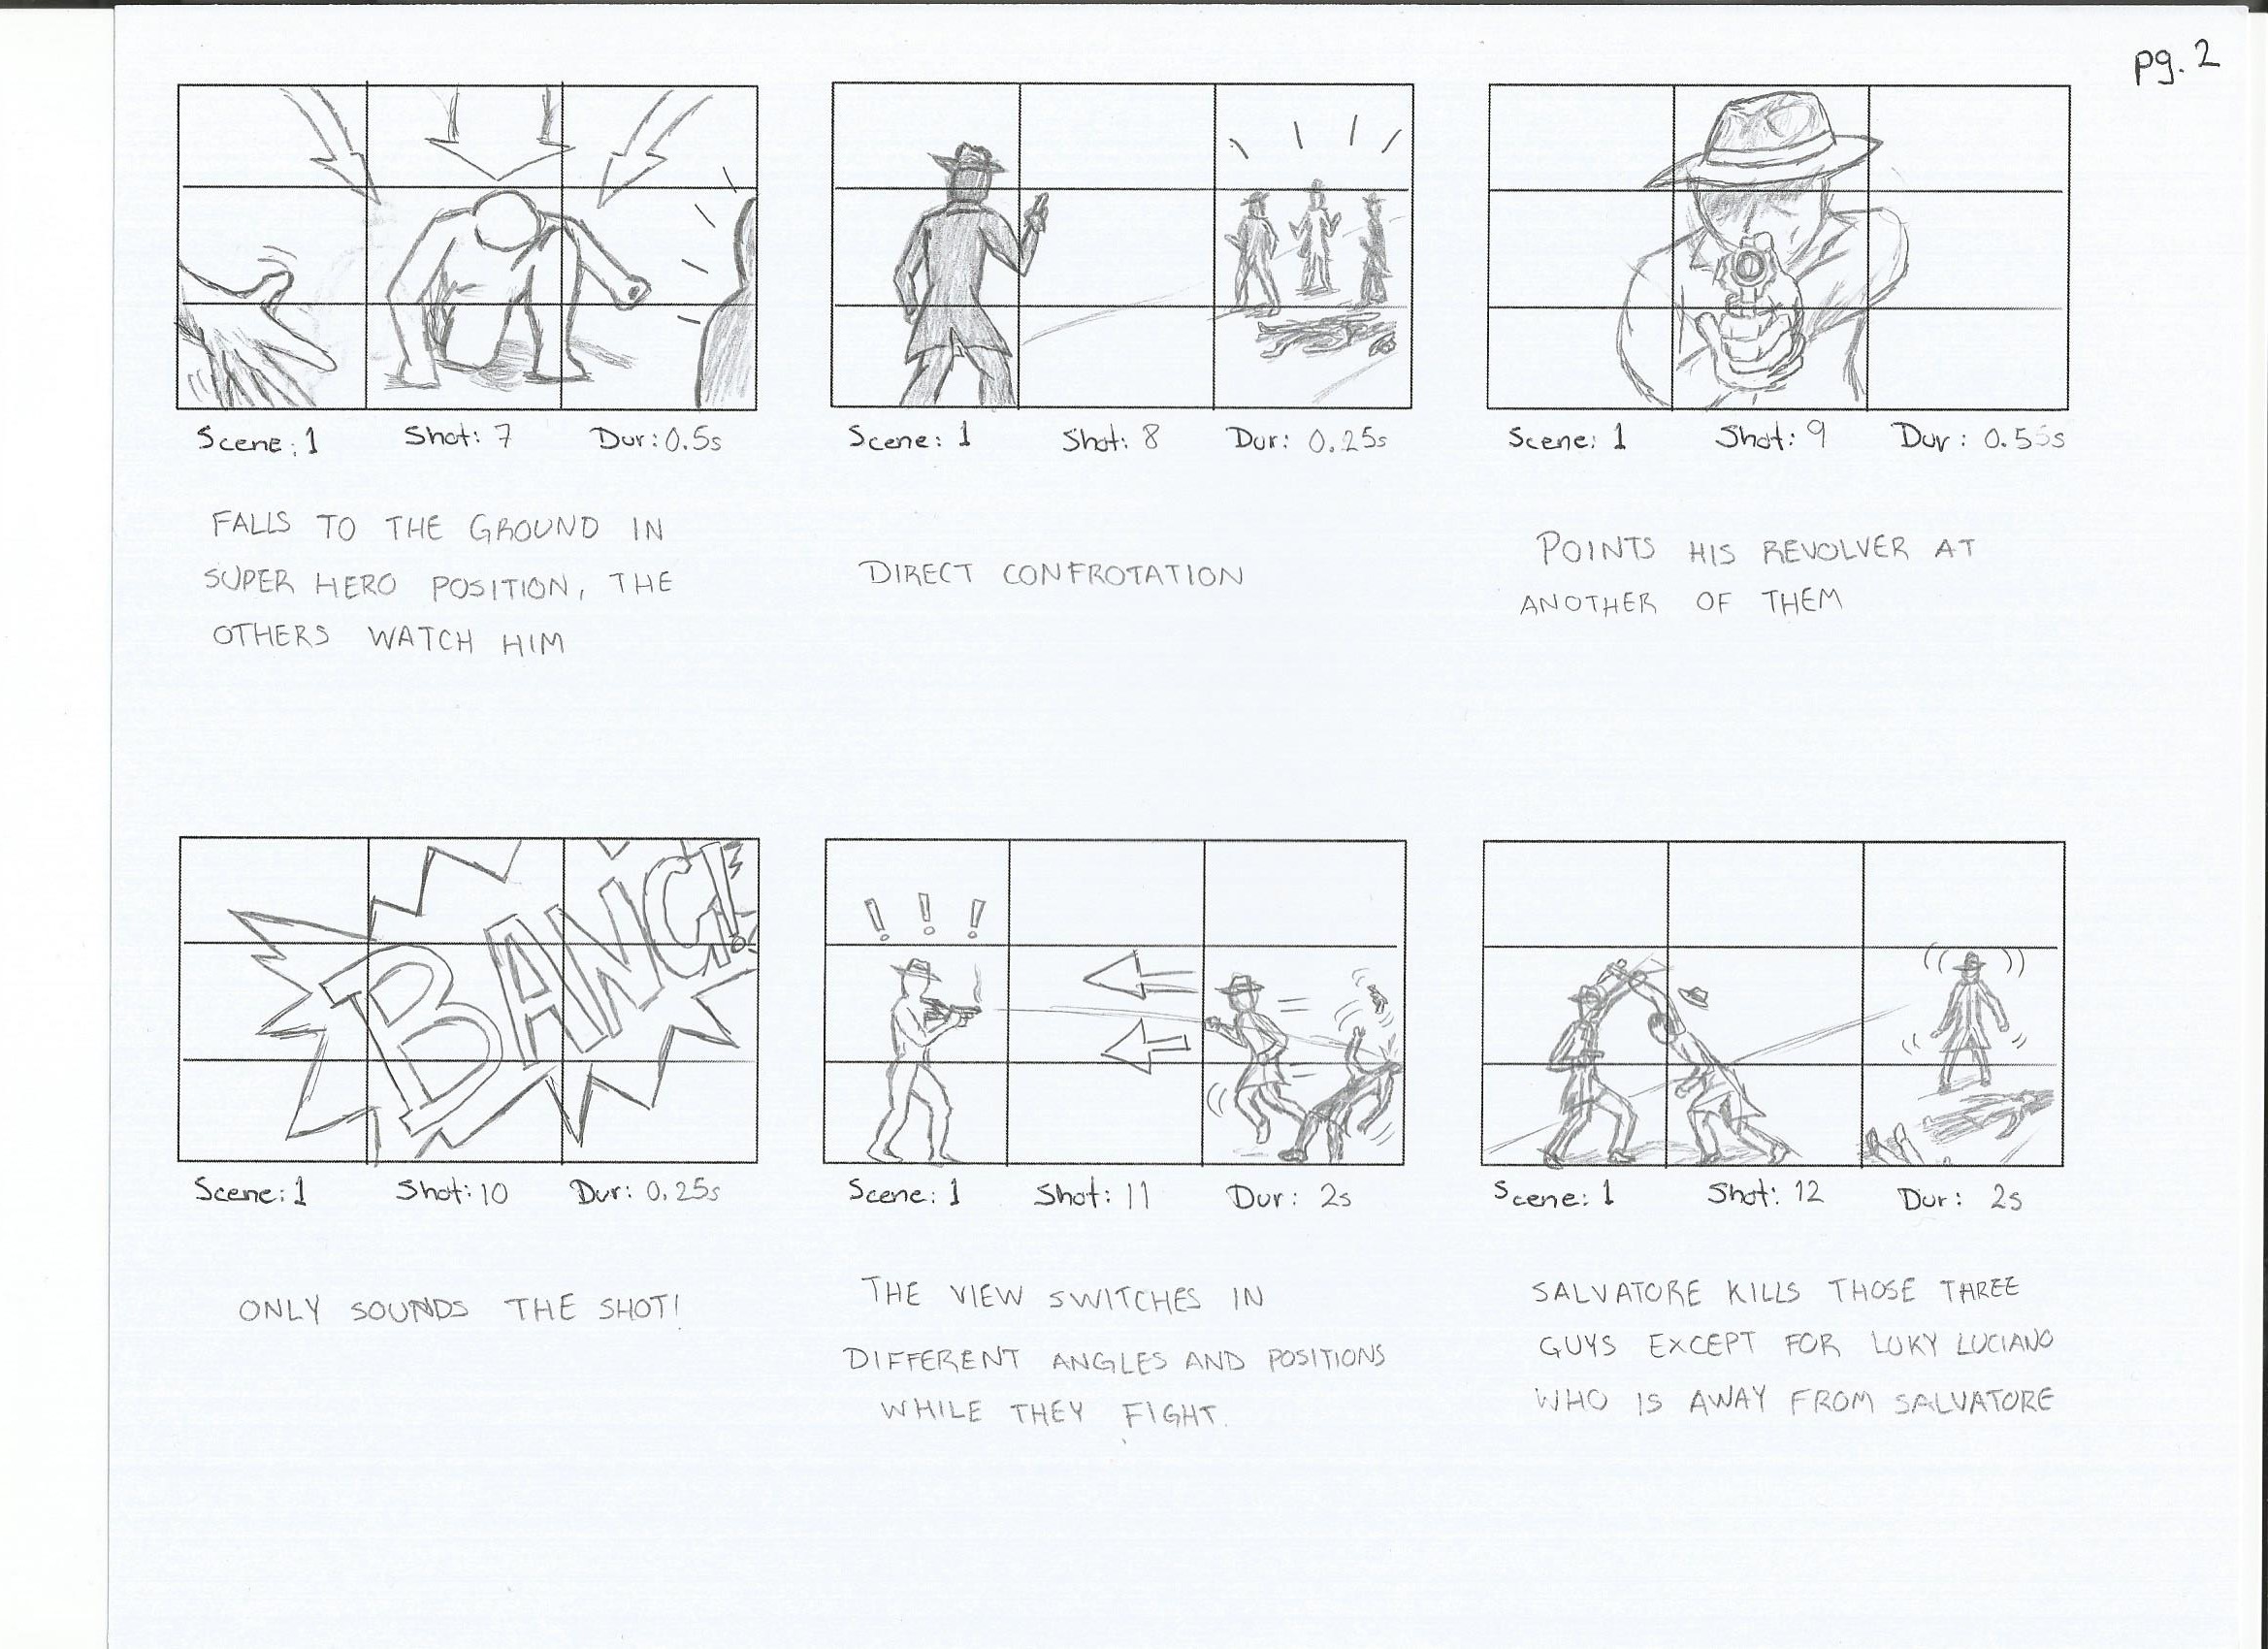 pg. 2
Scene: 1 Shot: 7 Dur: 0.5s
FALLS TO THE GROUND IN
SUPER HERO POSITION, THE
OTHERS WATCH HIM
Scene: 1 Shot: 8 Dur: 0.25s
DIRECT CONFROTATION
Scene: 1 Shot: 9 Dur:
POINTS HIS REVOLVER AT
ANOTHER OF THEM
BANG!
Scene: 1 Shot: 10 Dur: 0.25s
ONLY SOUNDS THE SHOT!
! ! !
Scene: 1 Shot: 11 Dur: 2s
THE VIEW SWITCHES IN
DIFFERENT ANGLES AND POSITIONS
WHILE THEY FIGHT.
Scene: 1 Shot: 12 Dur: 2s
SALVATORE KILLS THOSE THREE
GUYS EXCEPT FOR LUKY LUCIANO
WHO IS AWAY FROM SALVATORE